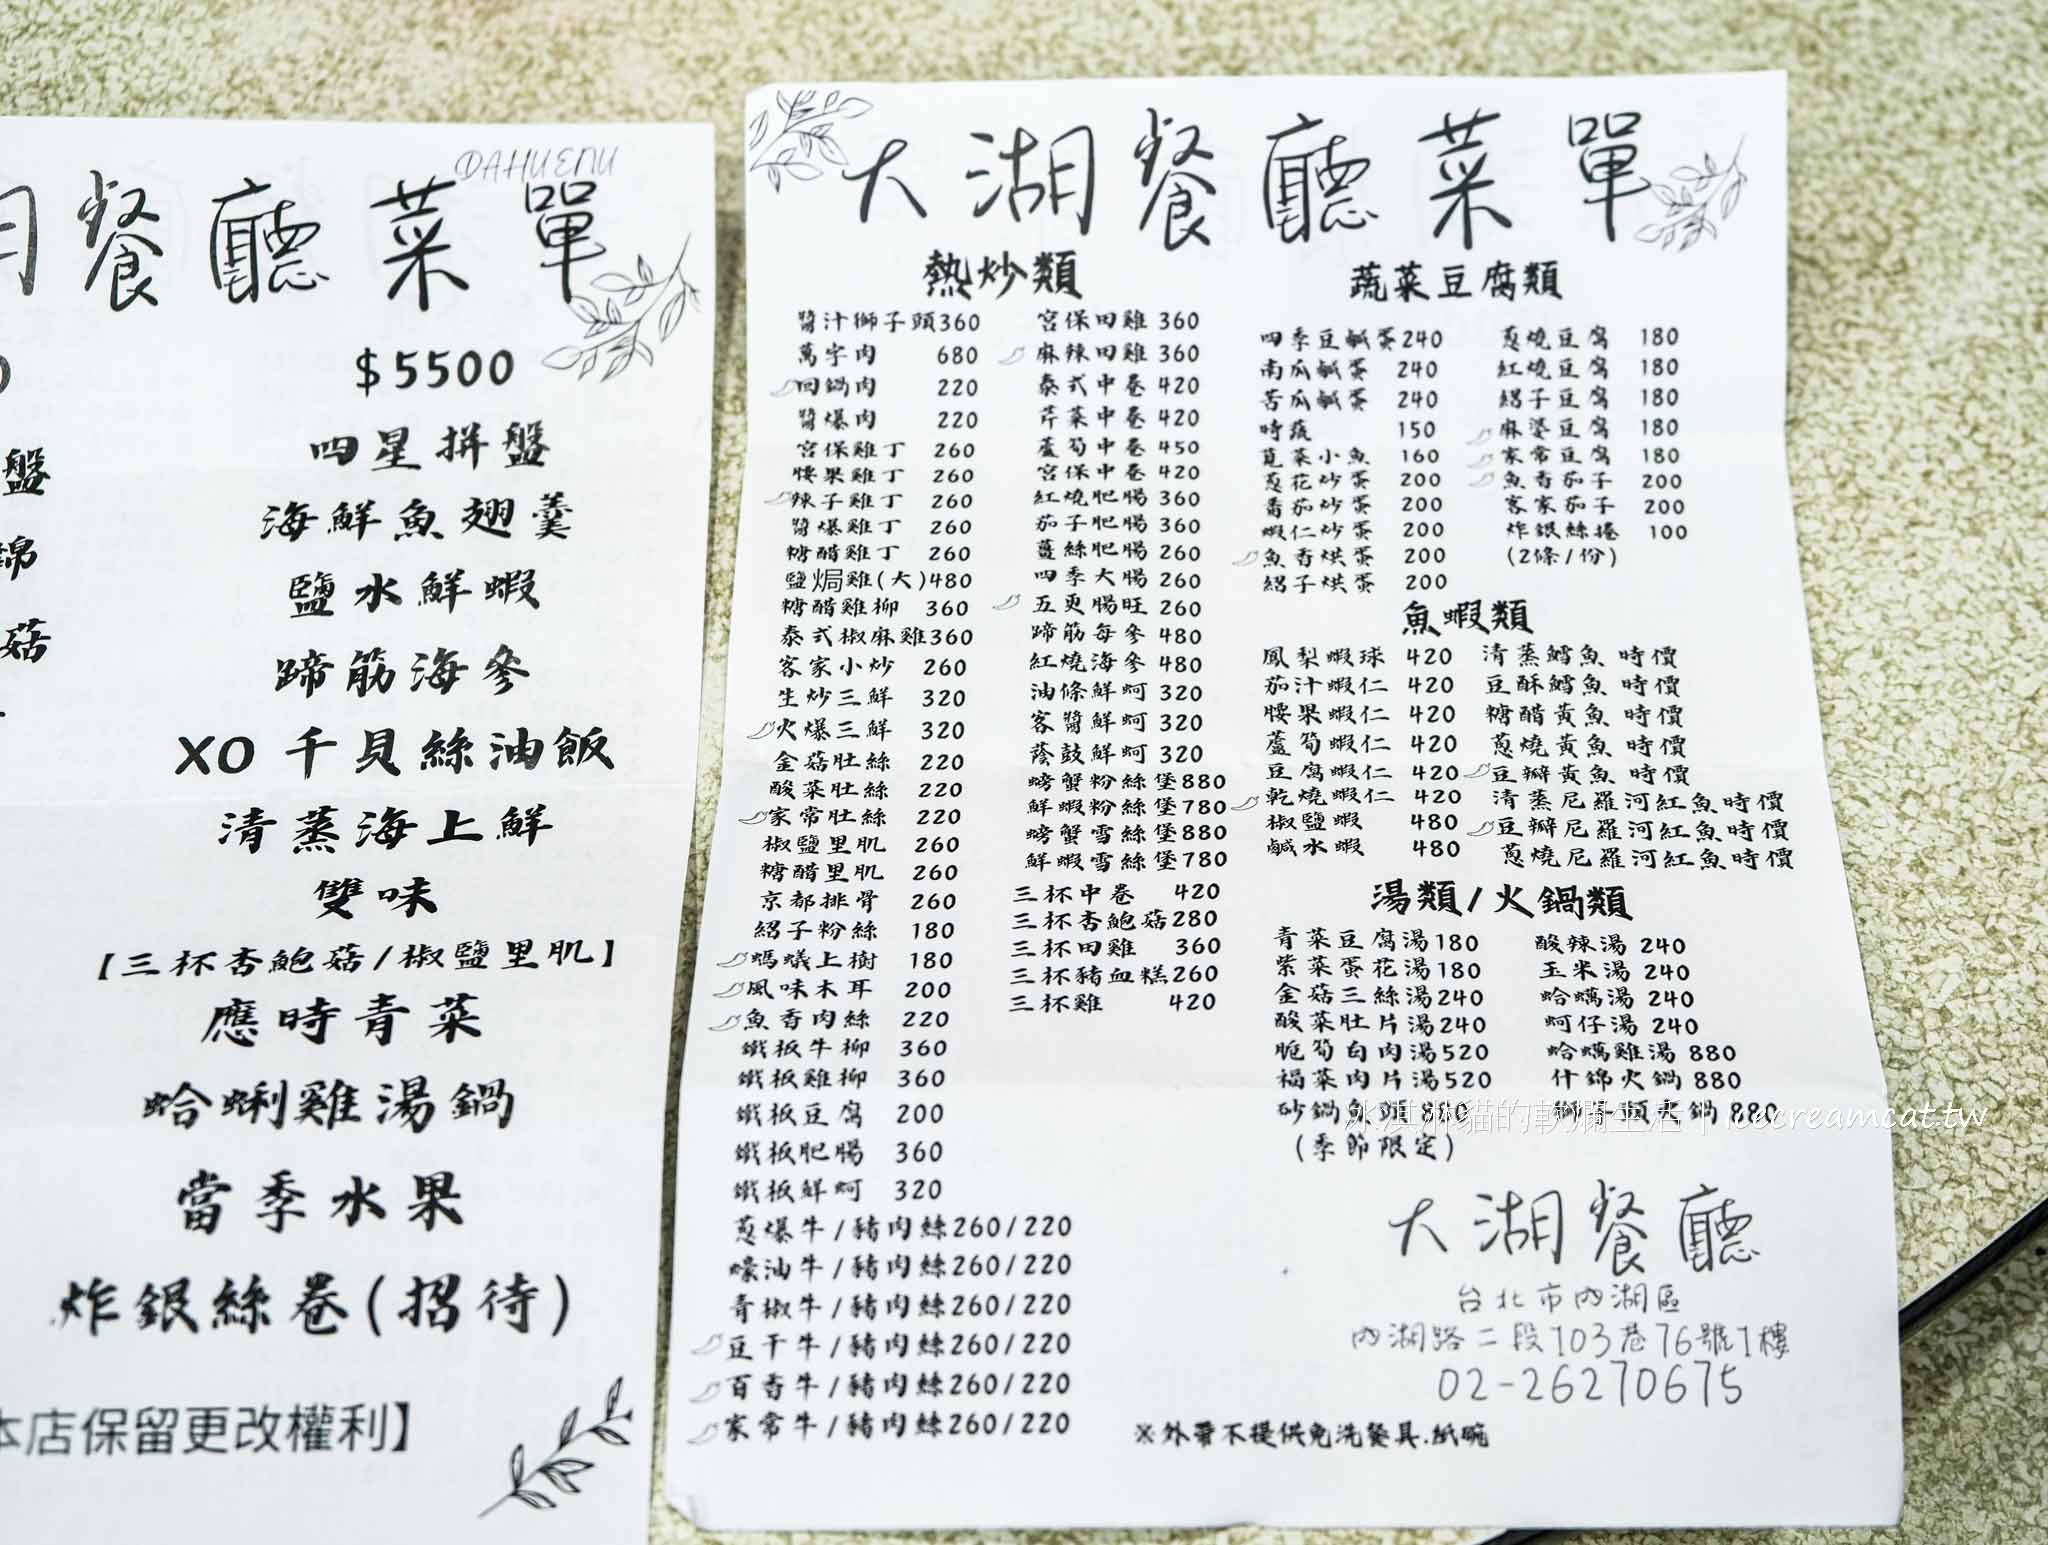 DAHUENU
月餐廳菜單
$5500
四星拼盤
海鮮魚翅羹
鹽水鮮蝦
蹄筋海參
XO干貝絲油飯
清蒸海上鮮
雙味
【三杯杏鮑菇/椒鹽里肌】
應時青菜
蛤蜊雞湯鍋
當季水果
炸銀絲卷(招待)
本店保留更改權利】
盤
錦
菇
大湖餐廳菜單
熱炒類
醬汁獅子頭360
萬字肉 680
回鍋肉 220
醬爆肉 220
宮保雞丁 260
腰果雞丁 260
辣子雞丁 260
醬爆雞丁 260
糖醋雞丁 260
鹽焗雞(大)480
糖醋雞柳 360
泰式椒麻雞360
客家小炒 260
生炒三鮮 320
火爆三鮮 320
金菇肚絲 220
酸菜肚絲 220
家常肚絲 220
椒鹽里肌 260
糖醋里肌 260
京都排骨 260
紹子粉絲 180
螞蟻上樹 180
風味木耳 200
魚香肉絲 220
鐵板牛柳 360
鐵板雞柳 360
鐵板豆腐 200
鐵板肥腸 360
鐵板鮮蚵 320
蔥爆牛/豬肉絲260/220
蠔油牛/豬肉絲260/220
青椒牛/豬肉絲260/220
豆干牛/豬肉絲260/220
百香牛/豬肉絲260/220
家常牛/豬肉絲260/220
宮保田雞 360
麻辣田雞 360
泰式中卷 420
芹菜中卷 420
蘆筍中卷 450
宮保中卷 420
紅燒肥腸 360
茄子肥腸 360
薑絲肥腸 260
四季大腸 260
五更腸旺 260
蹄筋每參 480
紅燒海參 480
油條鮮蚵 320
客醬鮮蚵 320
蔭鼓鮮蚵 320
螃蟹粉絲堡880
鮮蝦粉絲堡780
螃蟹雪絲堡880
鮮蝦雪絲堡780
三杯中卷 420
三杯杏鮑菇280
三杯田雞 360
三杯豬血糕260
三杯雞 420
蔬菜豆腐類
四季豆鹹蛋240
南瓜鹹蛋 240
苦瓜鹹蛋 240
時蔬 150
莧菜小魚 160
蔥花炒蛋 200
番茄炒蛋 200
蝦仁炒蛋 200
魚香烘蛋 200
紹子烘蛋 200
蔥燒豆腐 180
紅燒豆腐 180
紹子豆腐 180
麻婆豆腐 180
家常豆腐 180
魚香茄子 200
客家茄子 200
炸銀絲捲 100
(2條/份)
魚蝦類
鳳梨蝦球 420
茄汁蝦仁 420
腰果蝦仁 420
蘆筍蝦仁 420
豆腐蝦仁 420
乾燒蝦仁 420
椒鹽蝦 480
鹹水蝦 480
清蒸鱈魚 時價
豆酥鱈魚 時價
糖醋黃魚 時價
蔥燒黃魚 時價
豆瓣黃魚 時價
清蒸尼羅河紅魚時價
豆瓣尼羅河紅魚時價
蔥燒尼羅河紅魚時價
湯類/火鍋類
青菜豆腐湯180
紫菜蛋花湯180
金菇三絲湯240
酸菜肚片湯240
脆筍白肉湯520
福菜肉片湯520
砂鍋魚頭 880
(季節限定)
酸辣湯 240
玉米湯 240
蛤蠣湯 240
蚵仔湯 240
蛤蠣雞湯 880
什錦火鍋 880
獅子頭火鍋 880
冰淇淋貓的軟爛生活 | icecreamcat.tw
大湖餐廳
台北市內湖區
內湖路二段103巷76號1樓
02-26270675
※外帶不提供免洗餐具.紙碗